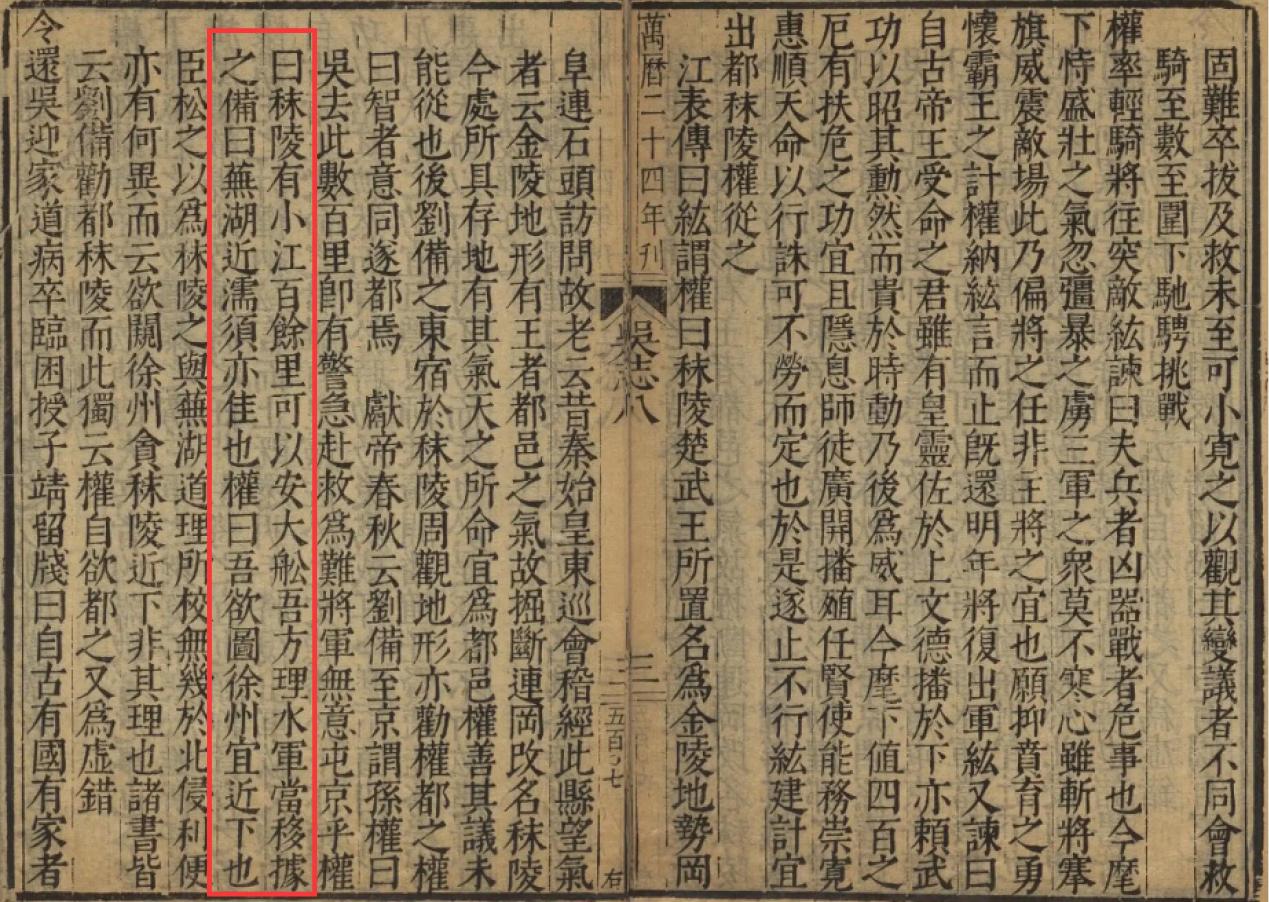 固難卒拔及救未至可小寬之以觀其變議者不同會救
騎至數至圍下馳騁挑戰
權率輕騎將往突敵紘諫曰夫兵者凶器戰者危事也今麾
下恃盛壯之氣忽彊暴之虜三軍之衆莫不寒心雖斬將搴
旗威震敵場此乃偏將之任非主將之宜也願抑賁育之勇
懷霸王之計權納紘言而止旣還明年將復出軍紘又諫曰
自古帝王受命之君雖有皇靈佐於上文德播於下亦賴武
功以昭其勳然而貴於時動乃後爲威耳今麾下值四百之
厄有扶危之功宜且隱息師徒廣開播殖任賢使能務崇寬
惠順天命以行誅可不勞而定也於是遂止不行紘建計宜
出都秣陵權從之
江表傳曰紘謂權曰秣陵楚武王所置名爲金陵地勢岡
萬曆二十四年刊
吳志八
三
五百七
右
阜連石頭訪問故老云昔秦始皇東巡會稽經此縣望氣
者云金陵地形有王者都邑之氣故掘斷連岡改名秣陵
今處所具存地有其氣天之所命宜爲都邑權善其議未
能從也後劉備之東宿於秣陵周觀地形亦勸權都之權
曰智者意同遂都焉 獻帝春秋云劉備至京謂孫權曰
吳去此數百里卽有警急赴救爲難將軍無意屯京乎權
曰秣陵有小江百餘里可以安大舩吾方理水軍當移據
之備曰蕪湖近濡須亦佳也權曰吾欲圖徐州宜近下也
臣松之以爲秣陵之與蕪湖道理所校無幾於北侵利便
亦有何異而云欲闚徐州貪秣陵近下非其理也諸書皆
云劉備勸都秣陵而此獨云權自欲都之又爲虛錯
令還吳迎家道病卒臨困授子靖留牋曰自古有國有家者